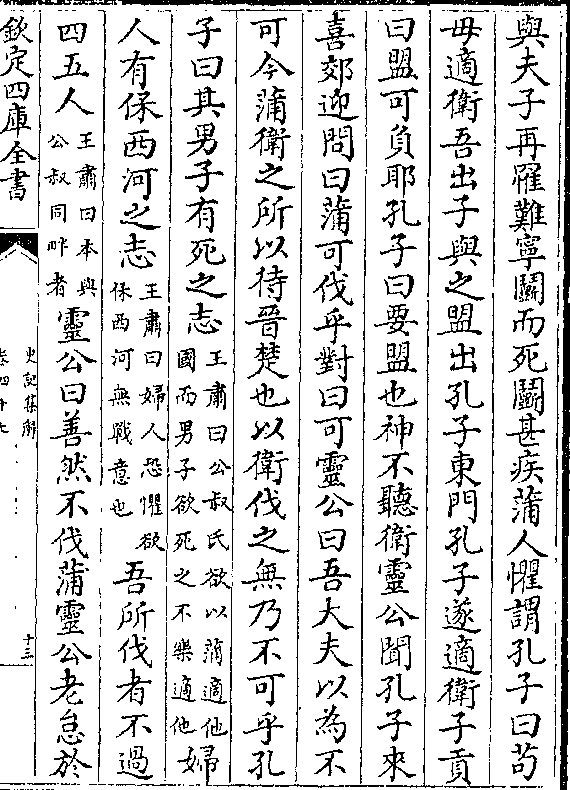 與夫子再罹難寧鬭而死鬭甚疾蒲人懼謂孔子曰茍
毋適衛吾出子與之盟出孔子東門孔子遂適衛子貢
曰盟可負耶孔子曰要盟也神不聽衛靈公聞孔子來
喜郊迎問曰蒲可伐乎對曰可靈公曰吾大夫以為不
可今蒲衛之所以待晉楚也以衛伐之無乃不可乎孔
子曰其男子有死之志王肅曰公叔氏欲以蒲適他國而男子欲死之不樂適他婦
人有保西河之志王肅曰婦人恐懼欲保西河無戰意也吾所伐者不過
四五人王肅曰本與公叔同畔者靈公曰善然不伐蒲靈公老怠於
欽定四庫全書
史記集解
卷四十七
十三